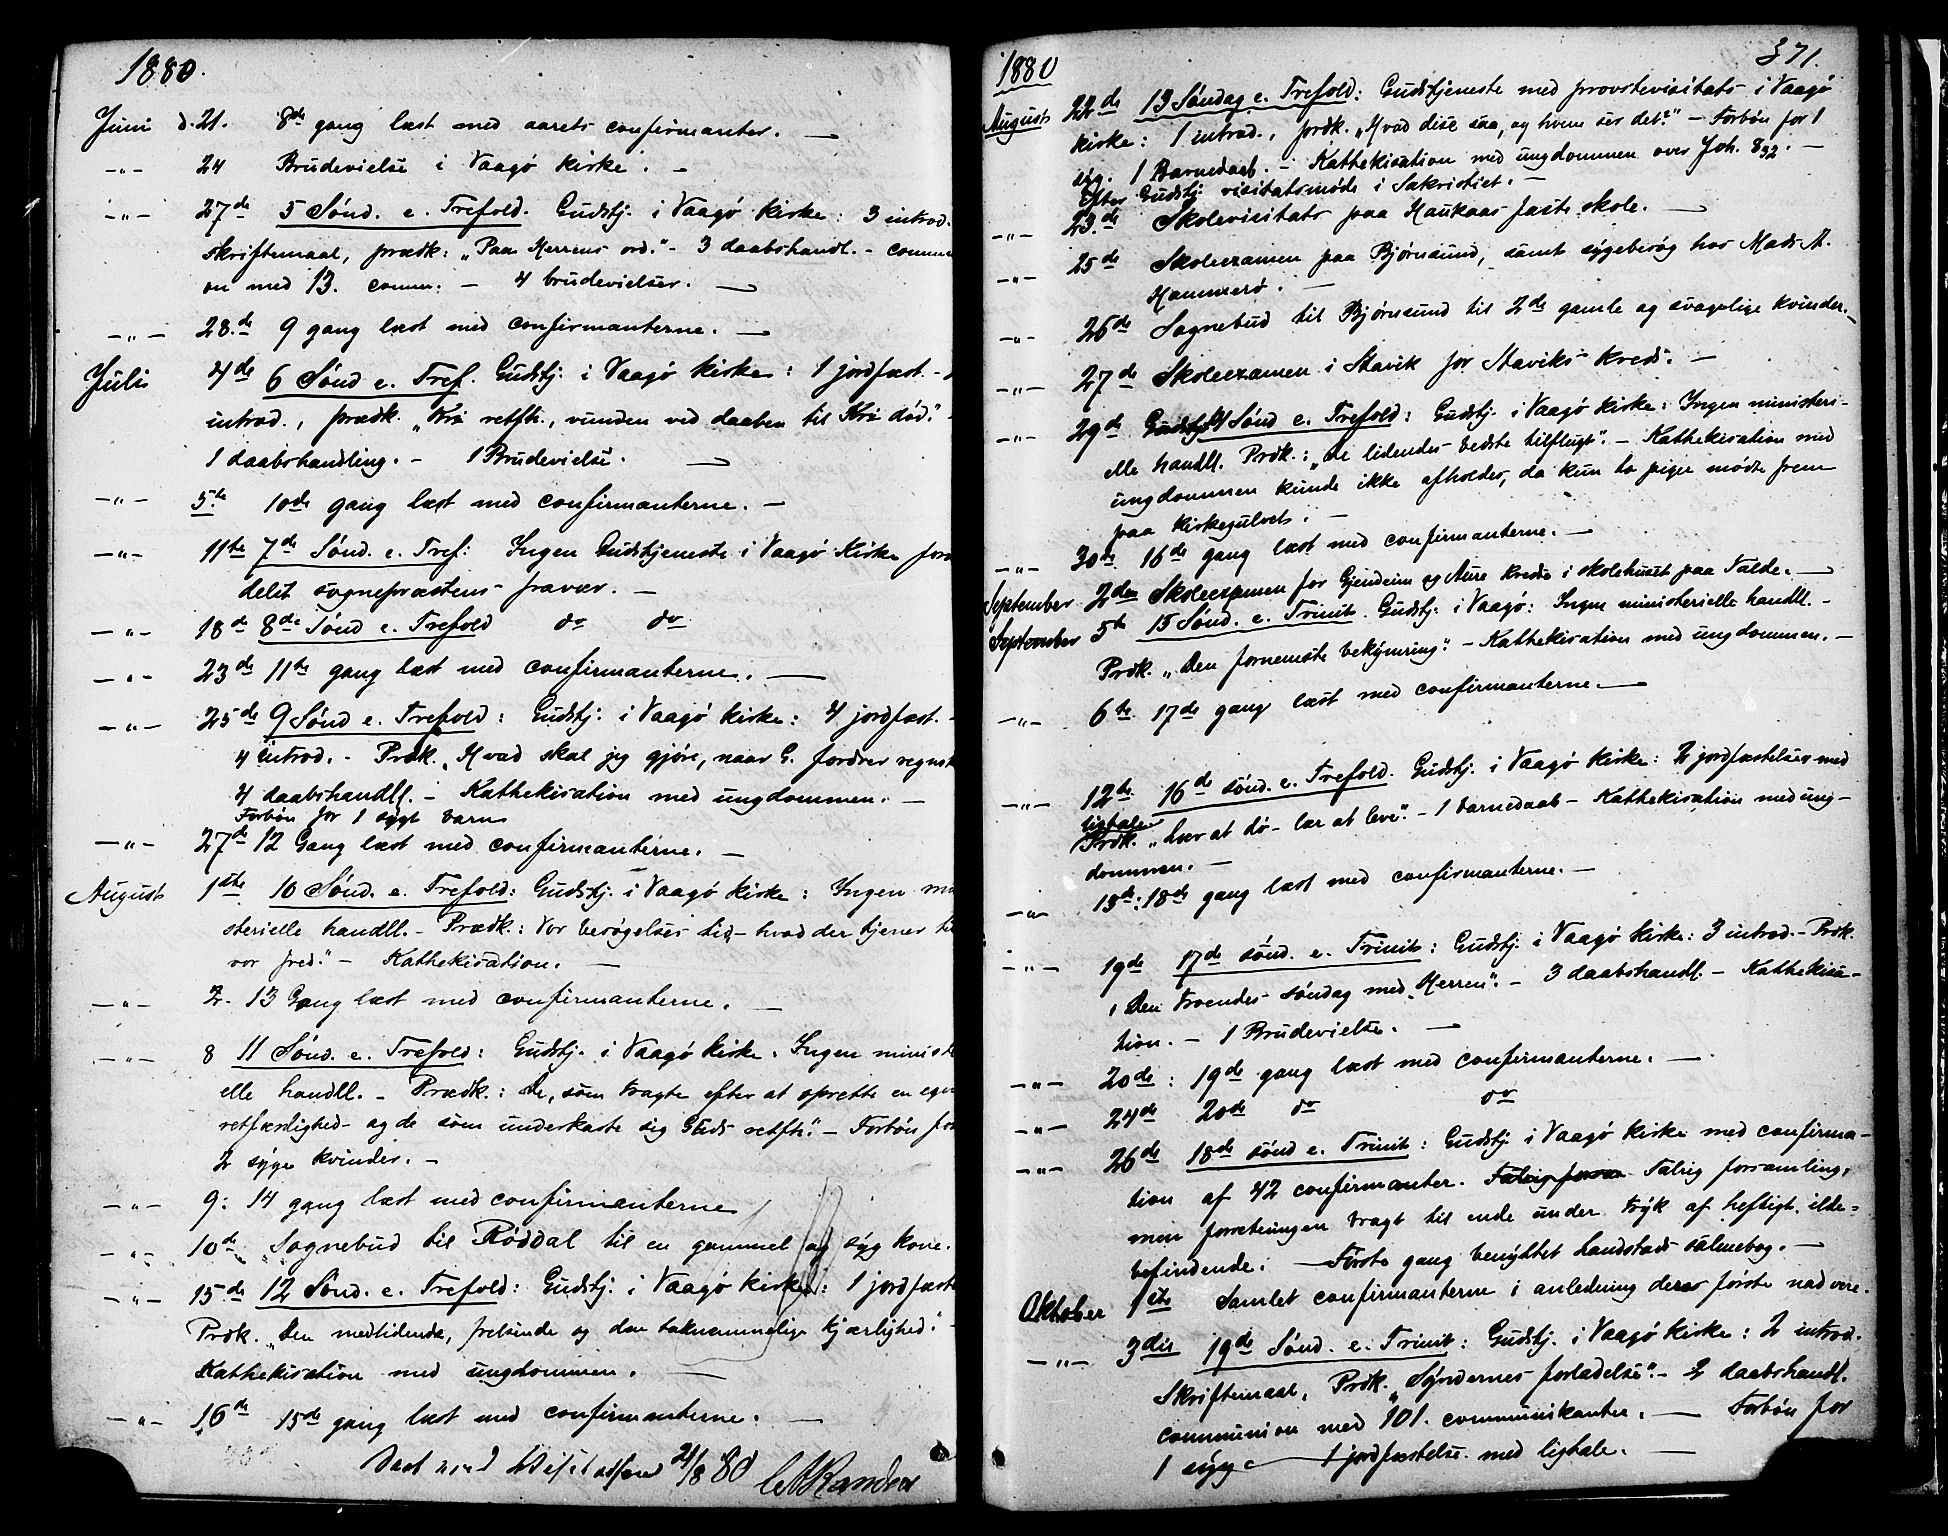 1880.
Juni d. 21. 8de gang læst med aarets confirmanter. —
-"- 24 Brudevielse i Vaagø kirke. —
-"- 27de 5 Sønd. e. Trefold. Gudstj. i Vaagø kirke: 3 introd.
skriftemaal, prædk: „Paa Herrens ord." - 3 daabshandl. - commu
on med 13. comm: - 4 brudevielser. —
-"- 28.de 9 gang læst med confirmanterne. —
Juli 4de 6 Sønd e. Tref. Gudstj. i Vaagø kirke: 1 jordfæst. -
introd., prædk. „Kri retfh., vunden ved daaben til Kri død." -
1 daabshandling. - 1 Brudevielse. —
-"- 5te 10de gang læst med confirmanterne. —
-"- 11te 7de Sønd. e. Tref: Ingen Gudstjeneste i Vaagø Kirke for
delst sognepræstens fravær. —
-"- 18de 8de Sønd e. Trefold do do
-"- 23de 11te gang læst med confirmanterne. —
-"- 25de 9 Sønd e. Trefold: Gudstj: i Vaagø kirke: 4 jordfæst. -
4 introd. - Prdk. „Hvad skal jeg gjøre, naar G. fordrer regnsk
4 daabshandll. - Kathekisation med ungdommen. —
Forbøn for 1 sygt barn
-"- 27de 12 Gang læst med confirmanterne. —
August 1ste 10 Sønd. e. Trefold: Gudstj: i Vaagø kirke: Ingen mi
sterielle handll. - Prædk.: Vor besøgelses tid - hvad der tjener til
vor fred." - Kathekisation. —
-"- 2. 13 Gang læst med confirmanterne. —
-"- 8 11 Sønd. e. Trefold: Gudstj. i Vaagø kirke. Ingen ministe
elle handll. - Prædk.: De, som tragte efter at oprette en egen
retfærdighed - og de som underkaste sig Guds retfh." - Forbøn for
2 syge kvinder. —
-"- 9: 14 gang læst med confirmanterne
-"- 10de Sognebud til Røddal til en gammel og syg kone.
-"- 15de 12 Sønd. e. Trefold: Gudstj. i Vaagø kirke: 1 jordfæst
Prdk. „Den medlidende, frelsende og den taknemmelige kjærlighed." -
Kathekisation med ungdommen. —
-"- 16de 15de gang læst med confirmanterne. —
21/8 80
1880 371.
August 22de 13 Søndag e. Trefold: Gudstjeneste med provstevisitats i Vaagø
kirke: 1 introd., prdk. „Hvad dise saa, og hvem ser det?" - Forbøn for 1
syg. 1 Barnedaab. - Kathekisation med ungdommen over Joh. 8 32. —
Efter Gudstj. visitatsmøde i Sakristiet. —
-"- 23.de Skolevisitats paa Haukaas faste skole. —
-"- 25de Skoleexamen paa Bjørnsund, samt sygebesøg hos Mads A.
Hammerø. —
-"- 26de Sognebud til Bjørnsund til 2de gamle og svagelige kvinder. —
-"- 27de Skoleexamen i Stavik for Staviks kreds. —
-"- 29de 14 Sønd e. Trefold: Gudstj. i Vaagø kirke: Ingen ministeri-
elle handll. Prdk.: „De lidendes bedste tilflugt". - Kathekisation med
ungdommen kunde ikke afholdes, da kun to piger mødte frem
paa kirkegulvet. —
-"- 30te 16de gang læst med confirmanterne. —
September 2den Skoleexamen for Gjendeim og Aure kredse i skolehuset paa Talde. —
September 5te 15 Sønd. e. Trinit. Gudstj: i Vaagø: Ingen ministerielle handll. -
Prdk. „Den fornemste bekymring." - Kathekisation med ungdommen. —
-"- 6te. 17de gang læst med confirmanterne. —
-"- 12te. 16de sønd. e. Trefold. Gudstj. i Vaagø kirke: 2 jordfæstelser med
ligtale
Prdk. „Lær at dø - lær at leve". - 1 barnedaab - Kathekisation med ung-
dommen. —
-"- 13de: 18de gang læst med confirmanterne. —
-"- 19de 17de sønd. e. Trinit: Gudstj. i Vaagø kirke: 3 introd. - Prdk.
„Den troendes søndag med Herren". - 3 daabshandl. - Kathekisa-
tion. - 1 Brudevielse. —
-"- 20de: 19de gang læst med confirmanterne. —
-"- 24de 20de do do
-"- 26de 18de sønd e. Trinit: Gudstj i Vaagø kirke med confirma-
tion af 42 confirmanter. Talrig forsamling,
men forretningen bragt til ende under tryk af heftigt ilde-
befindende. —Første gang benyttet Landstads salmebog. —
Oktober 1ste Samlet confirmanterne i anledning deres første nadvere.
-"- 3die 19de Sønd. e. Trinit: Gudstj. i Vaagø kirke: 2 introd.
Skriftemaal, Prdk. „Syndernes forladelse". - 2 daabshandl.
communion med 101. communikanter. — Forbøn for
1 syg — 1 jordfæstelse med ligtale. —